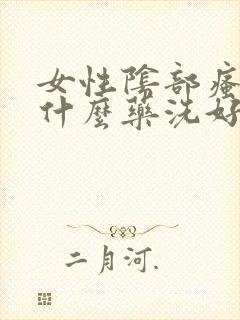 女性陰部瘙
什麼藥洗好
二月河.